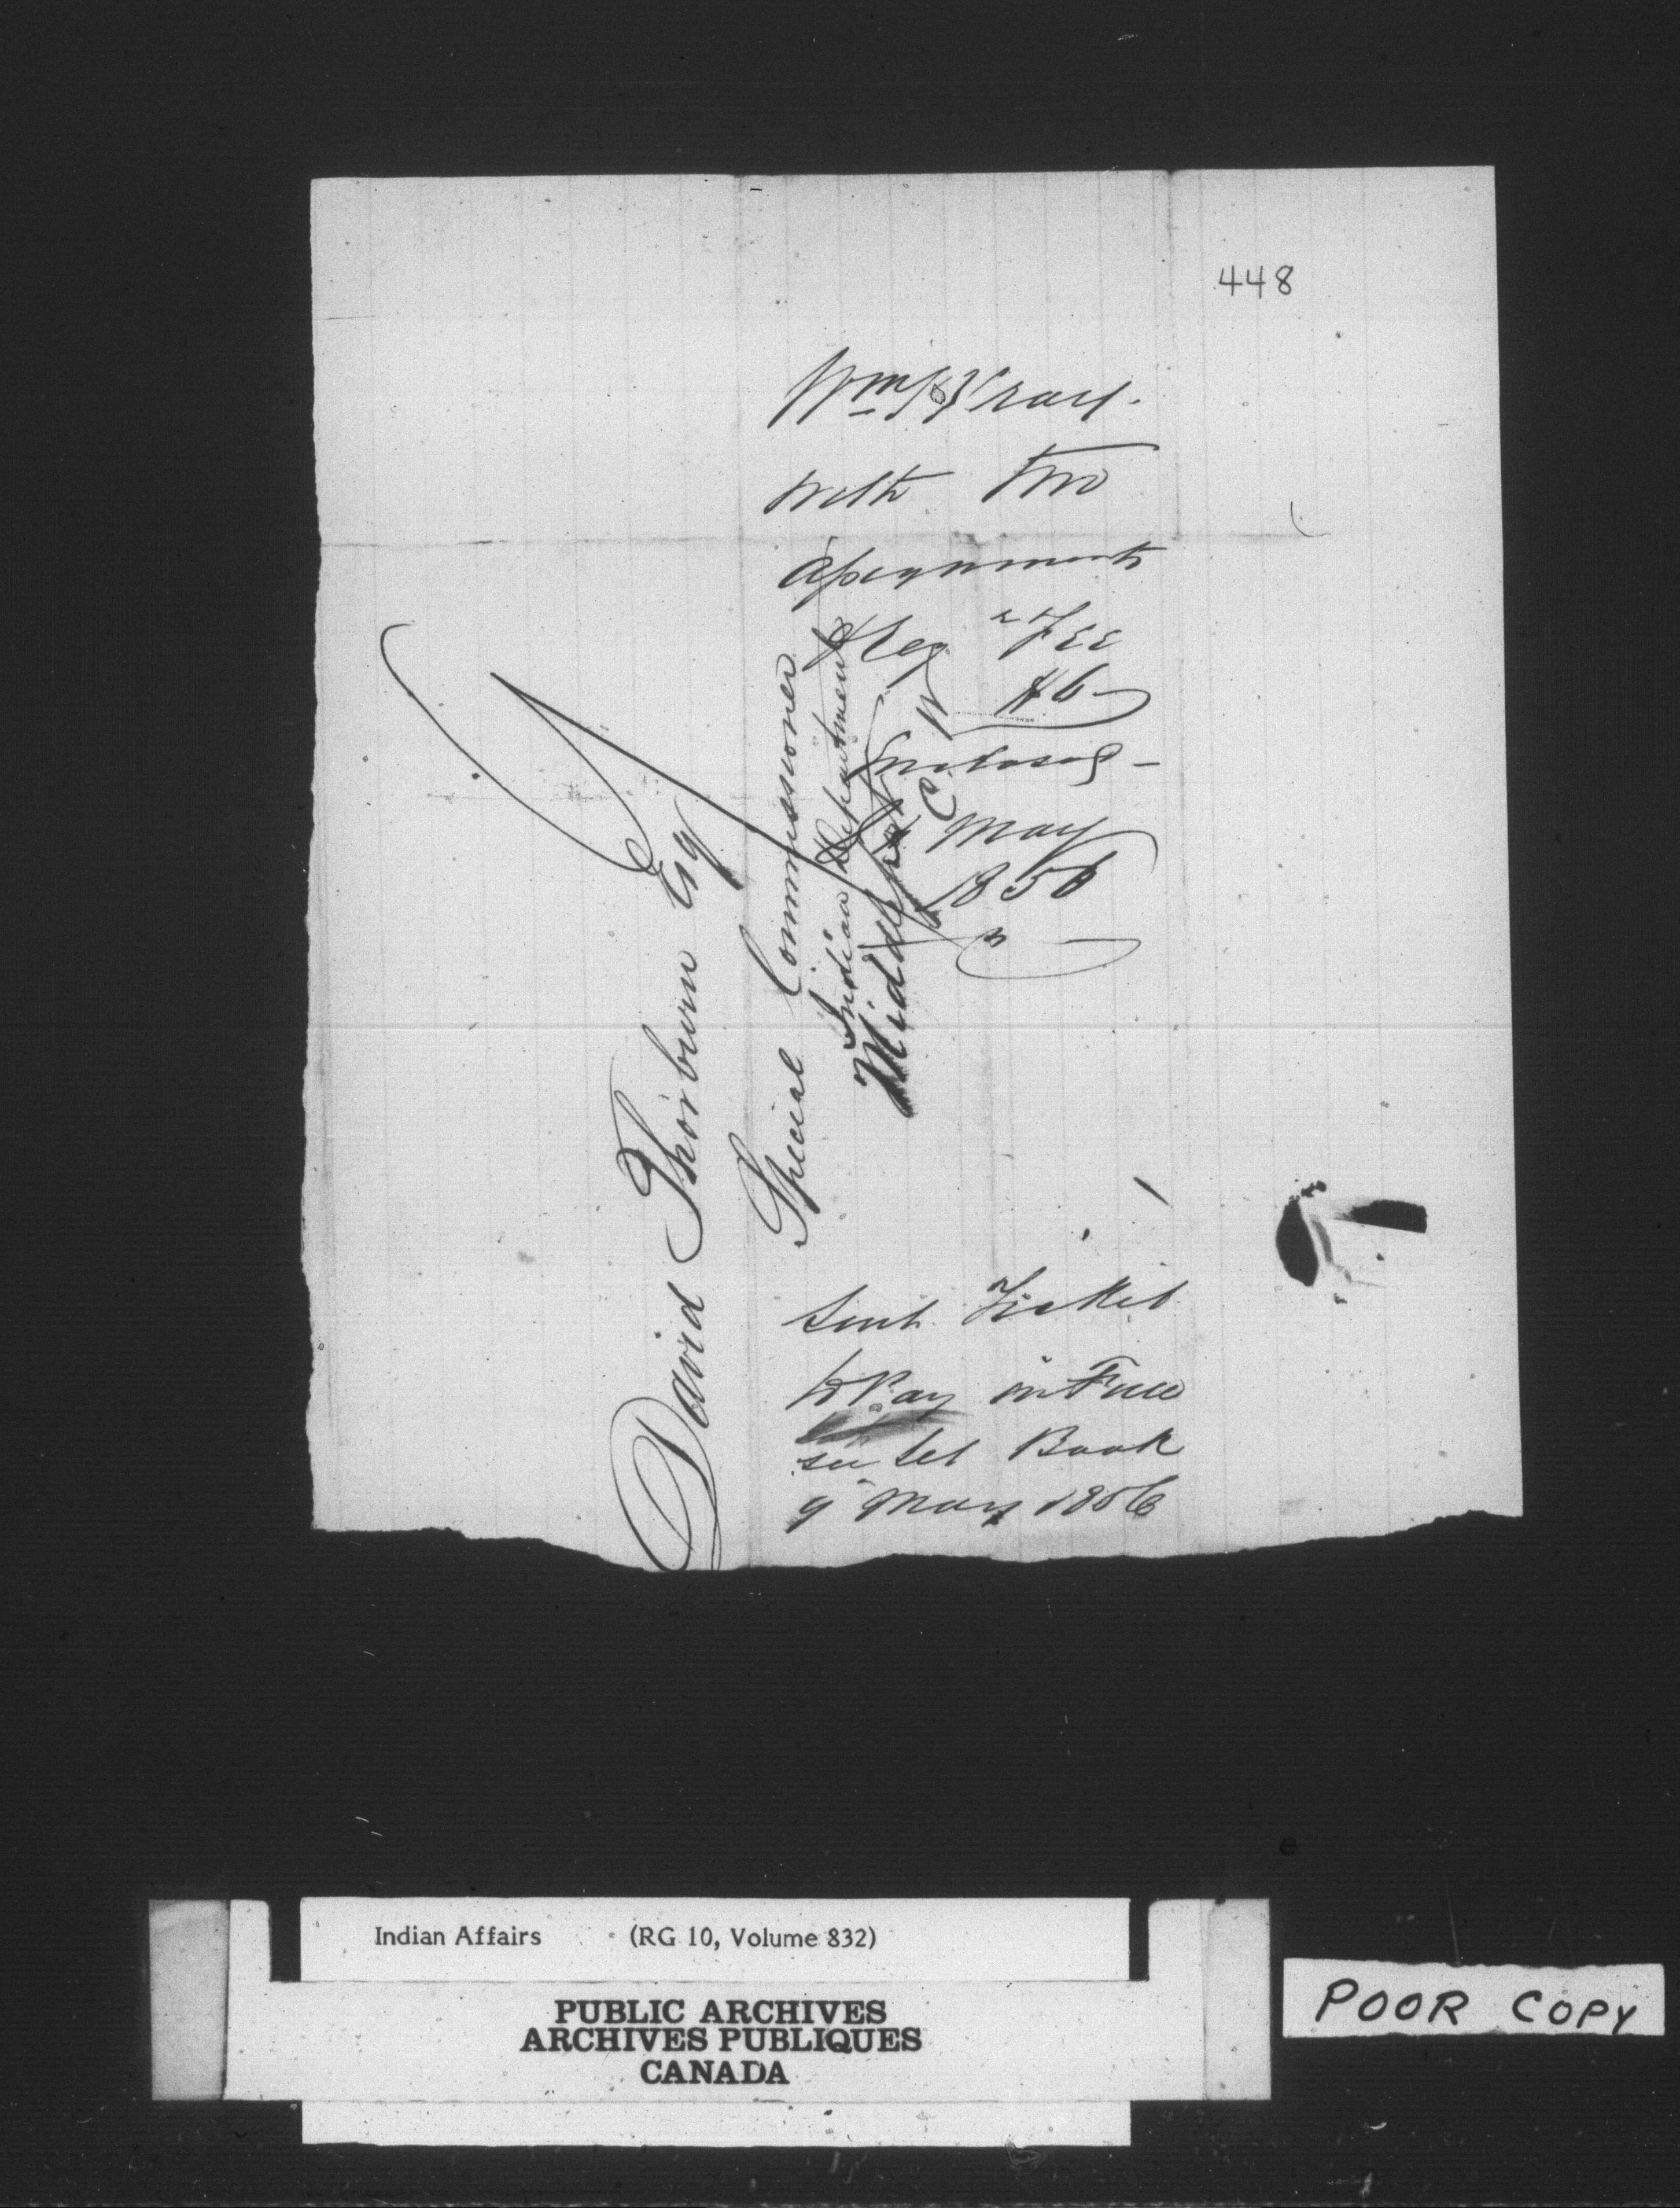 448
Wm
With Two
assignments
& Reg n Fee
$6
Enclosed -
May
1856
David Thorburn Esq
Special Commissioner
Indian Department
Middleport
C W
Sent Ticket
to Pay in Full
see Let Book
9 May 1856
Indian Affairs (RG 10, Volume 832)
PUBLIC ARCHIVES
ARCHIVES PUBLIQUES
CANADA
POOR COPY